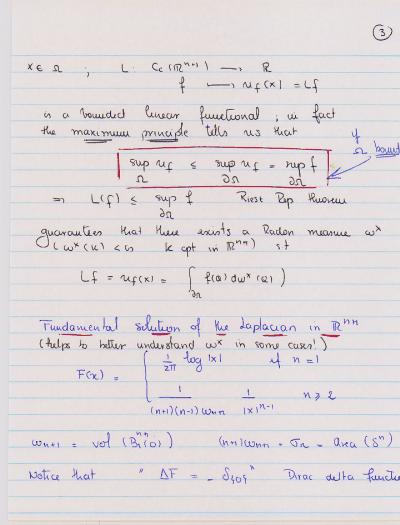 ③
x ∈ Ω ; L: Cc(ℝⁿ⁺¹) → ℝ
f → u_f(x) = Lf
is a bounded linear functional ; in fact
the maximum principle tells us that
if Ω bound
sup_Ω u_f ≤ sup_∂Ω u_f = sup_∂Ω f
⇒ L(f) ≤ sup_∂Ω f Riesz Rep theorem
guarantees that there exists a Radon measure ωˣ
(ωˣ(K) < ∞ K cpt in ℝⁿ⁺¹) st
Lf = u_f(x) = ∫_∂Ω f(Q) dωˣ(Q)
Fundamental solution of the Laplacian in ℝⁿ⁺¹
(helps to better understand ωˣ in some cases!)
F(x) = { 1/2π log |x| if n = 1
1/((n+1)(n-1)ω_{n+1}) 1/|x|ⁿ⁻¹ n ≥ 2
ω_{n+1} = vol (B₁ⁿ⁺¹(0)) (n+1)ω_{n+1} = σ_n = area (Sⁿ)
Notice that " ΔF = - δ_{0} " Dirac delta functi